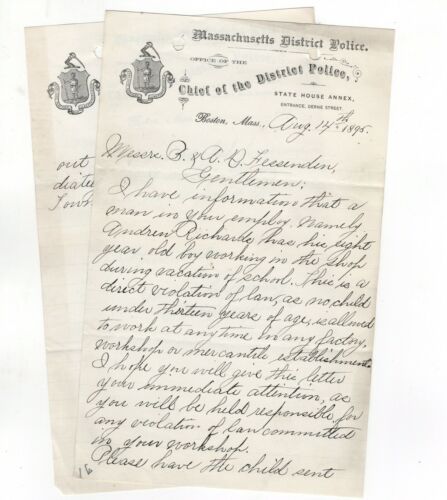 Massachusetts District Police.
OFFICE OF THE
Chief of the District Police,
STATE HOUSE ANNEX,
ENTRANCE, DERNE STREET.
Boston, Mass., Aug. 14th 1895.
Messrs. B. & A. D. Fessenden,
Gentlemen:
I have information that a
man in your employ. Namely
Andrew Richards, has his eight
year old boy working in the shop
during vacation of school. This is a
direct violation of law, as no child
under thirteen years of age, is allowed
to work at any time in any factory.
workshop or mercantile establishment.
I hope you will give this letter
your immediate attention, as
you will be held responsible for
any violation of law committed
in your workshop.
Please have the child sent
out
diate
Town